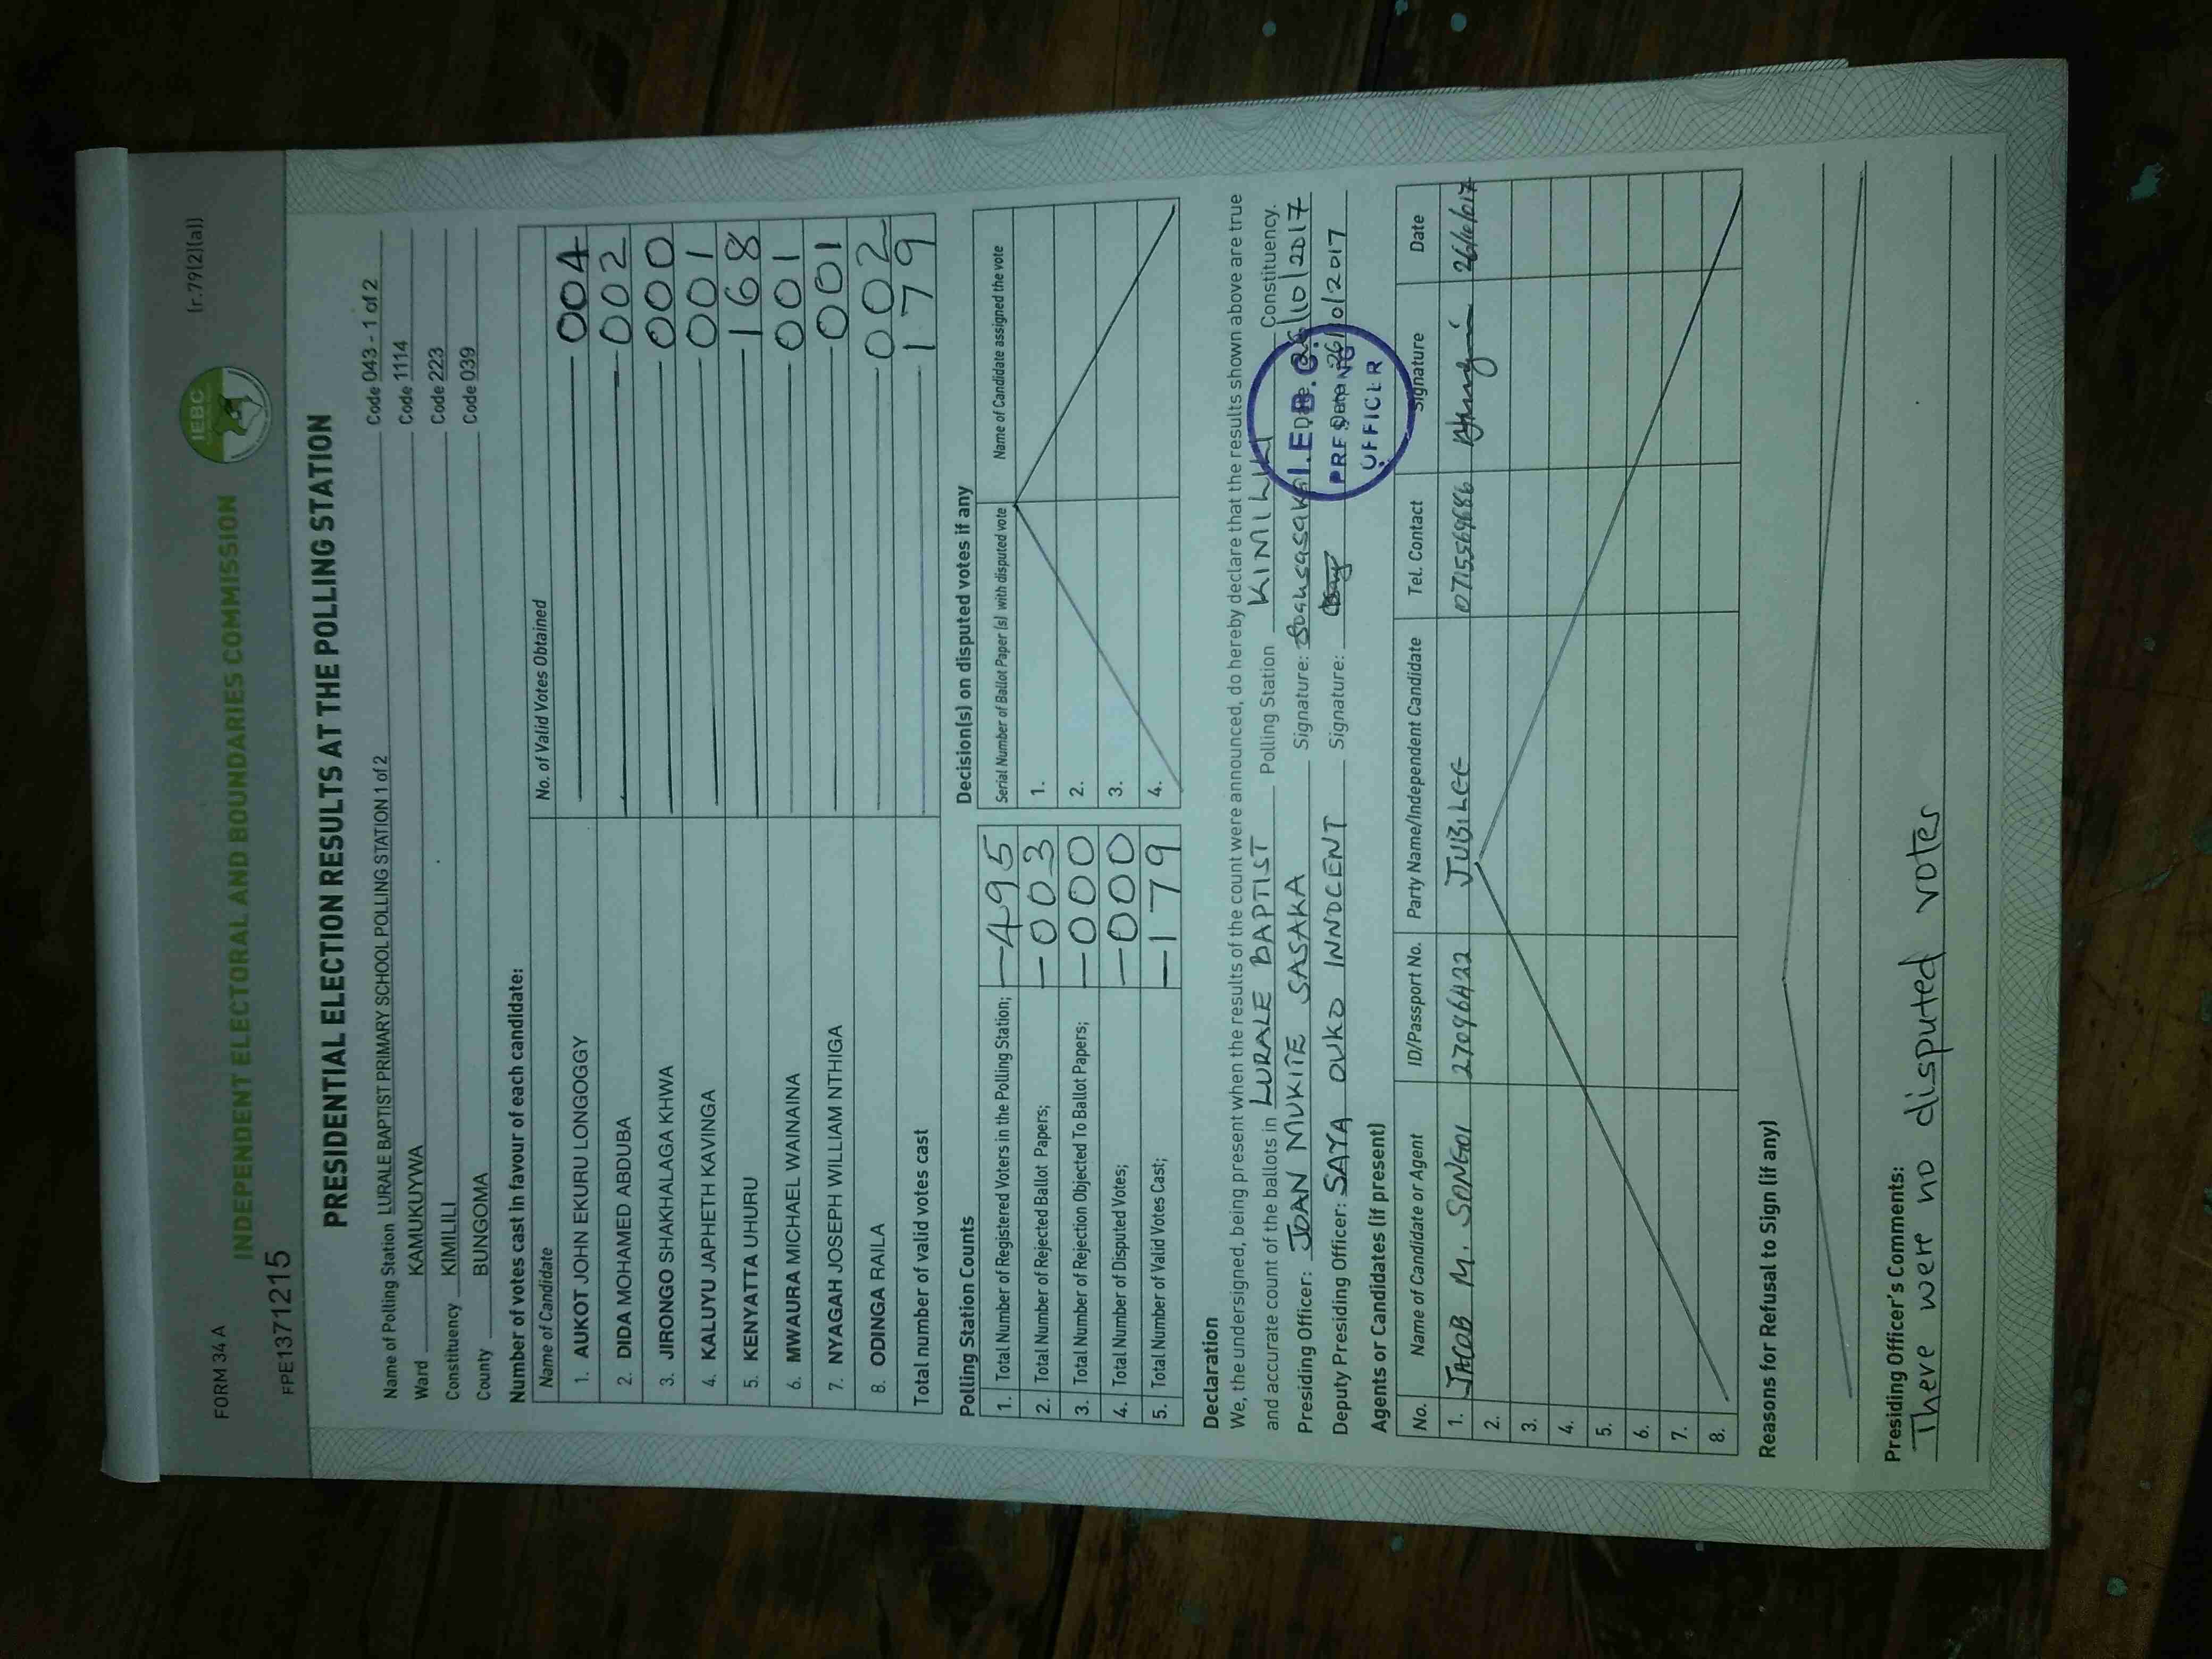 FORM 34 A
(r.79(2)(a))
IEBC
INDEPENDENT ELECTORAL AND BOUNDARIES COMMISSION
FPE1371215
PRESIDENTIAL ELECTION RESULTS AT THE POLLING STATION
Name of Polling Station LURALE BAPTIST PRIMARY SCHOOL POLLING STATION 1 of 2 Code 043 - 1 of 2
Ward KAMUKUYWA Code 1114
Constituency KIMILILI Code 223
County BUNGOMA Code 039
Number of votes cast in favour of each candidate:
Name of Candidate No. of Valid Votes Obtained
1. AUKOT JOHN EKURU LONGOGGY 004
2. DIDA MOHAMED ABDUBA 002
3. JIRONGO SHAKHALAGA KHWA 000
4. KALUYU JAPHETH KAVINGA 001
5. KENYATTA UHURU 168
6. MWAURA MICHAEL WAINAINA 001
7. NYAGAH JOSEPH WILLIAM NTHIGA 001
8. ODINGA RAILA 002
Total number of valid votes cast 179
Polling Station Counts
1. Total Number of Registered Voters in the Polling Station; 495
2. Total Number of Rejected Ballot Papers; 003
3. Total Number of Rejection Objected To Ballot Papers; 000
4. Total Number of Disputed Votes; 000
5. Total Number of Valid Votes Cast; 179
Decision(s) on disputed votes if any
Serial Number of Ballot Paper (s) with disputed vote Name of Candidate assigned the vote
1.
2.
3.
4.
Declaration
We, the undersigned, being present when the results of the count were announced, do hereby declare that the results shown above are true
and accurate count of the ballots in LURALE BAPTIST Polling Station KIMILILI Constituency.
Presiding Officer: JOAN MUKITE SASAKA Signature: Date 26/10/2017
Deputy Presiding Officer: SAYA OUKO INNOCENT Signature: Date 26/10/2017
I.E.B.C.
PRESIDING
OFFICER
Agents or Candidates (if present)
No. Name of Candidate or Agent ID/Passport No. Party Name/Independent Candidate Tel. Contact Signature Date
1. JACOB M. SONGOI 27096422 JUBILEE 0715569686 26/10/017
2.
3.
4.
5.
6.
7.
8.
Reasons for Refusal to Sign (if any)
Presiding Officer's Comments:
There were no disputed votes